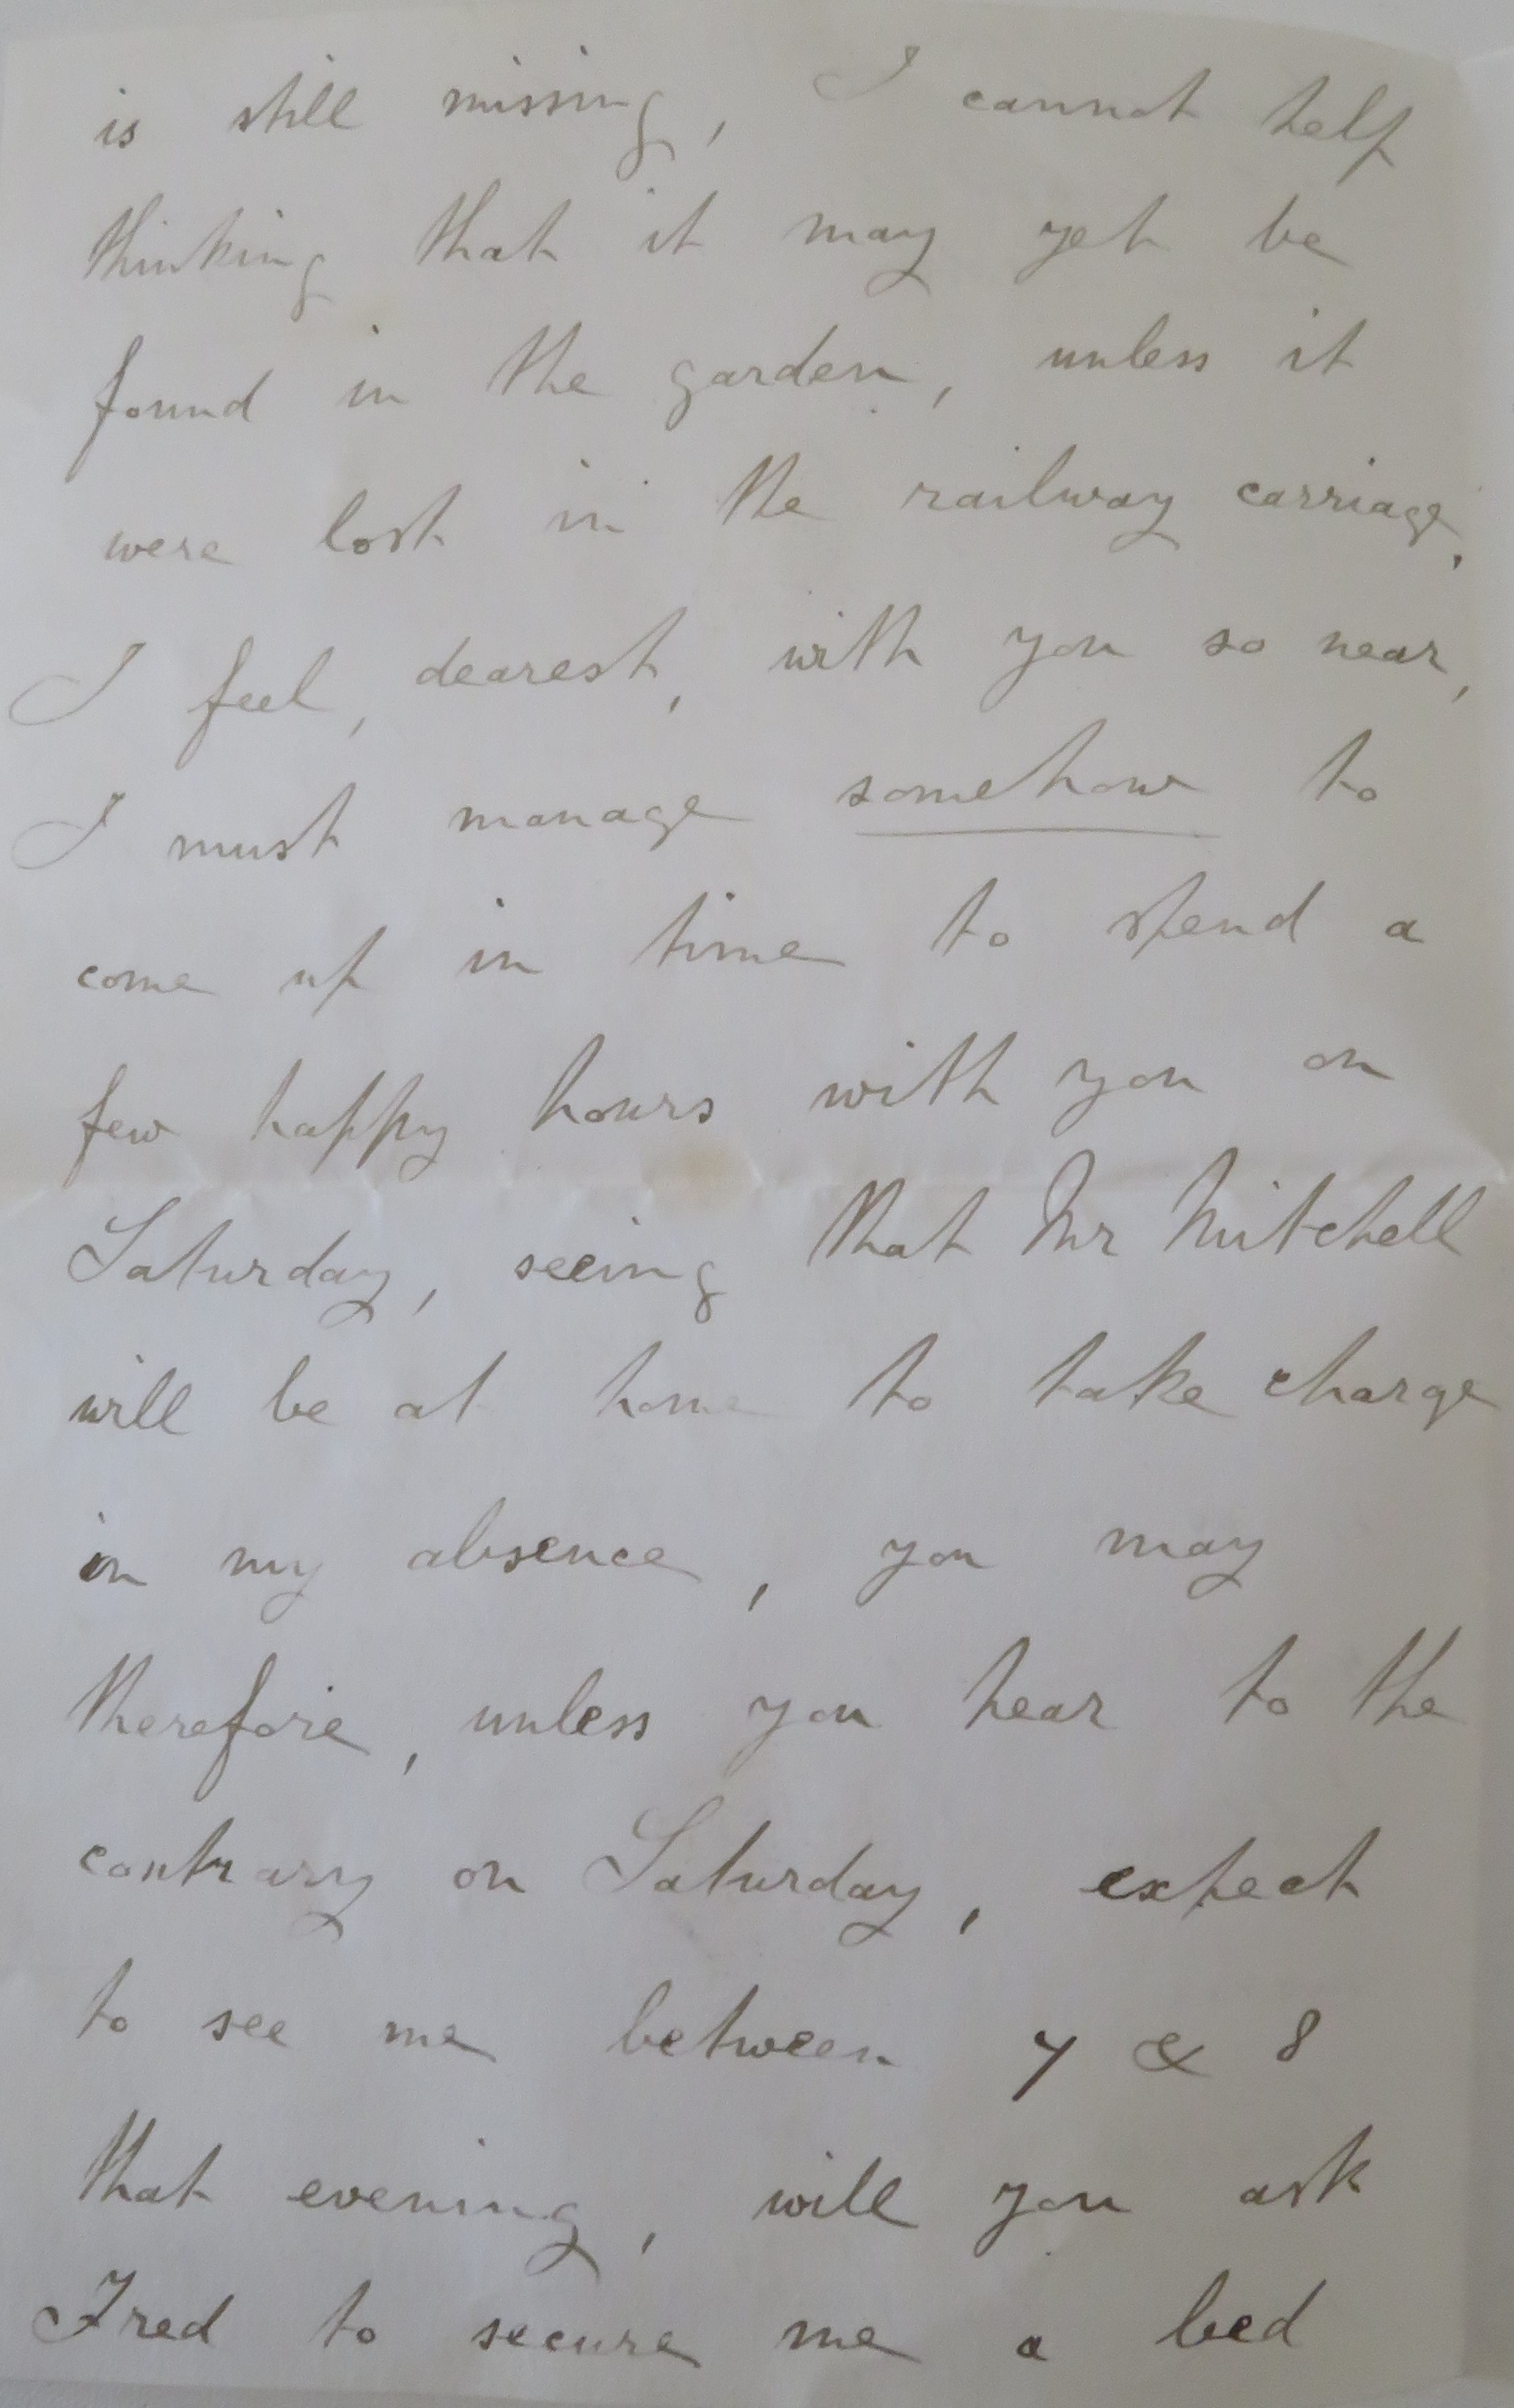 is still missing, I cannot help
thinking that it may yet be
found in the garden, unless it
were lost in the railway carriage,
I feel, dearest, with you so near,
I must manage somehow to
come up in time to spend a
few happy hours with you on
Saturday, seeing that Mr Mitchell
will be at home to take charge
in my absence, you may
therefore, unless you hear to the
contrary on Saturday, expect
to see me between 7 & 8
that evening, will you ask
Fred to secure me a bed